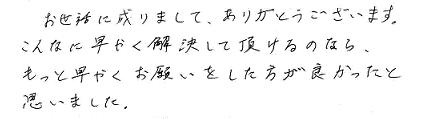 お世話に成りまして、ありがとうございます。
こんなに早やく解決して頂けるのなら、
もっと早やくお願いをした方が良かったと
思いました。